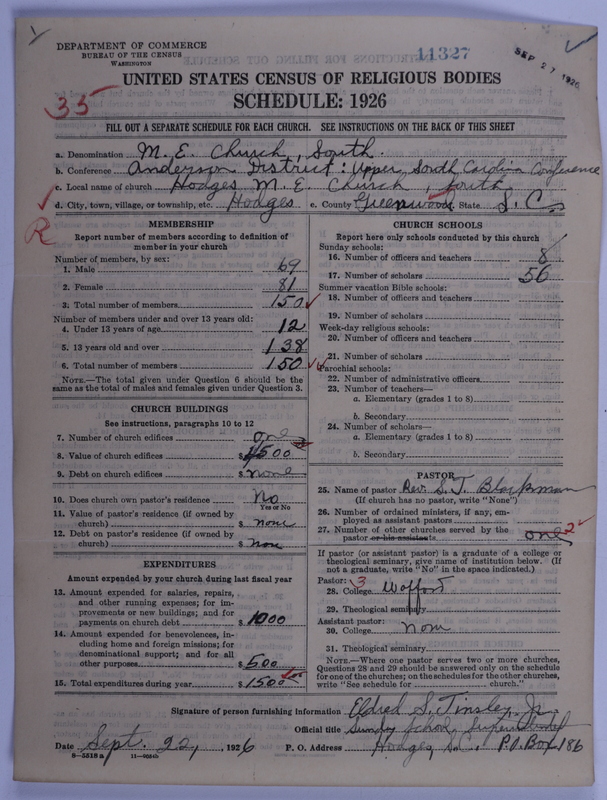 DEPARTMENT OF COMMERCE
BUREAU OF THE CENSUS
WASHINGTON
11327
SEP 27 1926
UNITED STATES CENSUS OF RELIGIOUS BODIES
SCHEDULE: 1926
35
FILL OUT A SEPARATE SCHEDULE FOR EACH CHURCH. SEE INSTRUCTIONS ON THE BACK OF THIS SHEET
a. Denomination M. E. Church, South.
b. Conference Anderson District: Upper South Carolina Conference
c. Local name of church Hodges M. E. Church, South
d. City, town, village, or township, etc. Hodges e. County Greenwood State S. C.
R
MEMBERSHIP
Report number of members according to definition of member in your church
Number of members, by sex:
1. Male 69
2. Female 81
3. Total number of members 150
Number of members under and over 13 years old:
4. Under 13 years of age 12
5. 13 years old and over 138
6. Total number of members 150
NOTE.—The total given under Question 6 should be the same as the total of males and females given under Question 3.
CHURCH BUILDINGS
See instructions, paragraphs 10 to 12
7. Number of church edifices one
8. Value of church edifices $ 4500
9. Debt on church edifices $ none
10. Does church own pastor's residence No
Yes or No
11. Value of pastor's residence (if owned by church) $ none
12. Debt on pastor's residence (if owned by church) $ none
EXPENDITURES
Amount expended by your church during last fiscal year
13. Amount expended for salaries, repairs, and other running expenses; for improvements or new buildings; and for payments on church debt $ 1000
14. Amount expended for benevolences, including home and foreign missions; for denominational support; and for all other purposes $ 500
15. Total expenditures during year $ 1500
CHURCH SCHOOLS
Report here only schools conducted by this church
Sunday schools:
16. Number of officers and teachers 8
17. Number of scholars 56
Summer vacation Bible schools:
18. Number of officers and teachers
19. Number of scholars
Week-day religious schools:
20. Number of officers and teachers
21. Number of scholars
Parochial schools:
22. Number of administrative officers
23. Number of teachers—
a. Elementary (grades 1 to 8)
b. Secondary
24. Number of scholars—
a. Elementary (grades 1 to 8)
b. Secondary
PASTOR
25. Name of pastor Rev. S. T. Blackman
(If church has no pastor, write "None")
26. Number of ordained ministers, if any, employed as assistant pastors
27. Number of other churches served by the pastor or his assistants one 2
If pastor (or assistant pastor) is a graduate of a college or theological seminary, give name of institution below. (If not a graduate, write "No" in the space indicated.)
Pastor: 3
28. College Wofford
29. Theological seminary
Assistant pastor:
30. College none
31. Theological seminary
NOTE.—Where one pastor serves two or more churches, Questions 28 and 29 should be answered only on the schedule for one of the churches; on the schedules for the other churches, write "See schedule for church."
Signature of person furnishing information Eldred S. Tinsley, Jr.
Official title Sunday School Superintendent
Date Sept. 22, 1926 P. O. Address Hodges, S.C. P.O. Box 186
8—5518a 11—9054b